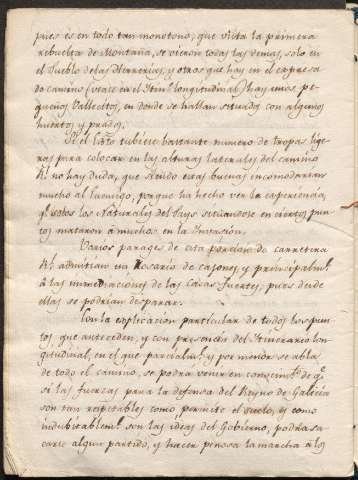 pues es en todo tan monotono, que vista la primera
rebuelta de Montaña, se vieron todas las demas, solo en
el Pueblo de las Herrerias, y otros que hay en el expresa-
do camino (vease en el Itin.º longitudinal) hay unos pe-
queños Vallecitos, en donde se hallan situados con algunos
huertos y prados.
Si el tubiese bastante numero de tropas lige-
ras para colocar en las alturas laterales del camino
R.l no hay duda, que siendo esas buenas incomodarian
mucho al Enemigo, porque ha hecho ver la experiencia,
q.e solos los Naturales del Pays situandose en ciertos pun-
tos mataron á muchos en la Invasion.
Varios parages de esta porcion de carretera
R.l admitian un Rosario de cajones, y principalm.te
á las immediaciones de las Casas fuertes, pues desde
ellas se podrian desparar.
Con la explicacion particular de todos los pun-
tos, que anteceden, y con presencia del Itinerario lon-
gitudinal, en el que parcialm.te y por menor se abla
de todo el camino, se podra venir en conocim.to de q.e
si las fuerzas para la defensa del Reyno de Galicia
son tan respetables como permite el suelo, y como
indubitablem.te son las ideas del Gobierno, podra sa-
carse algun partido, y hacer penosa la marcha á los